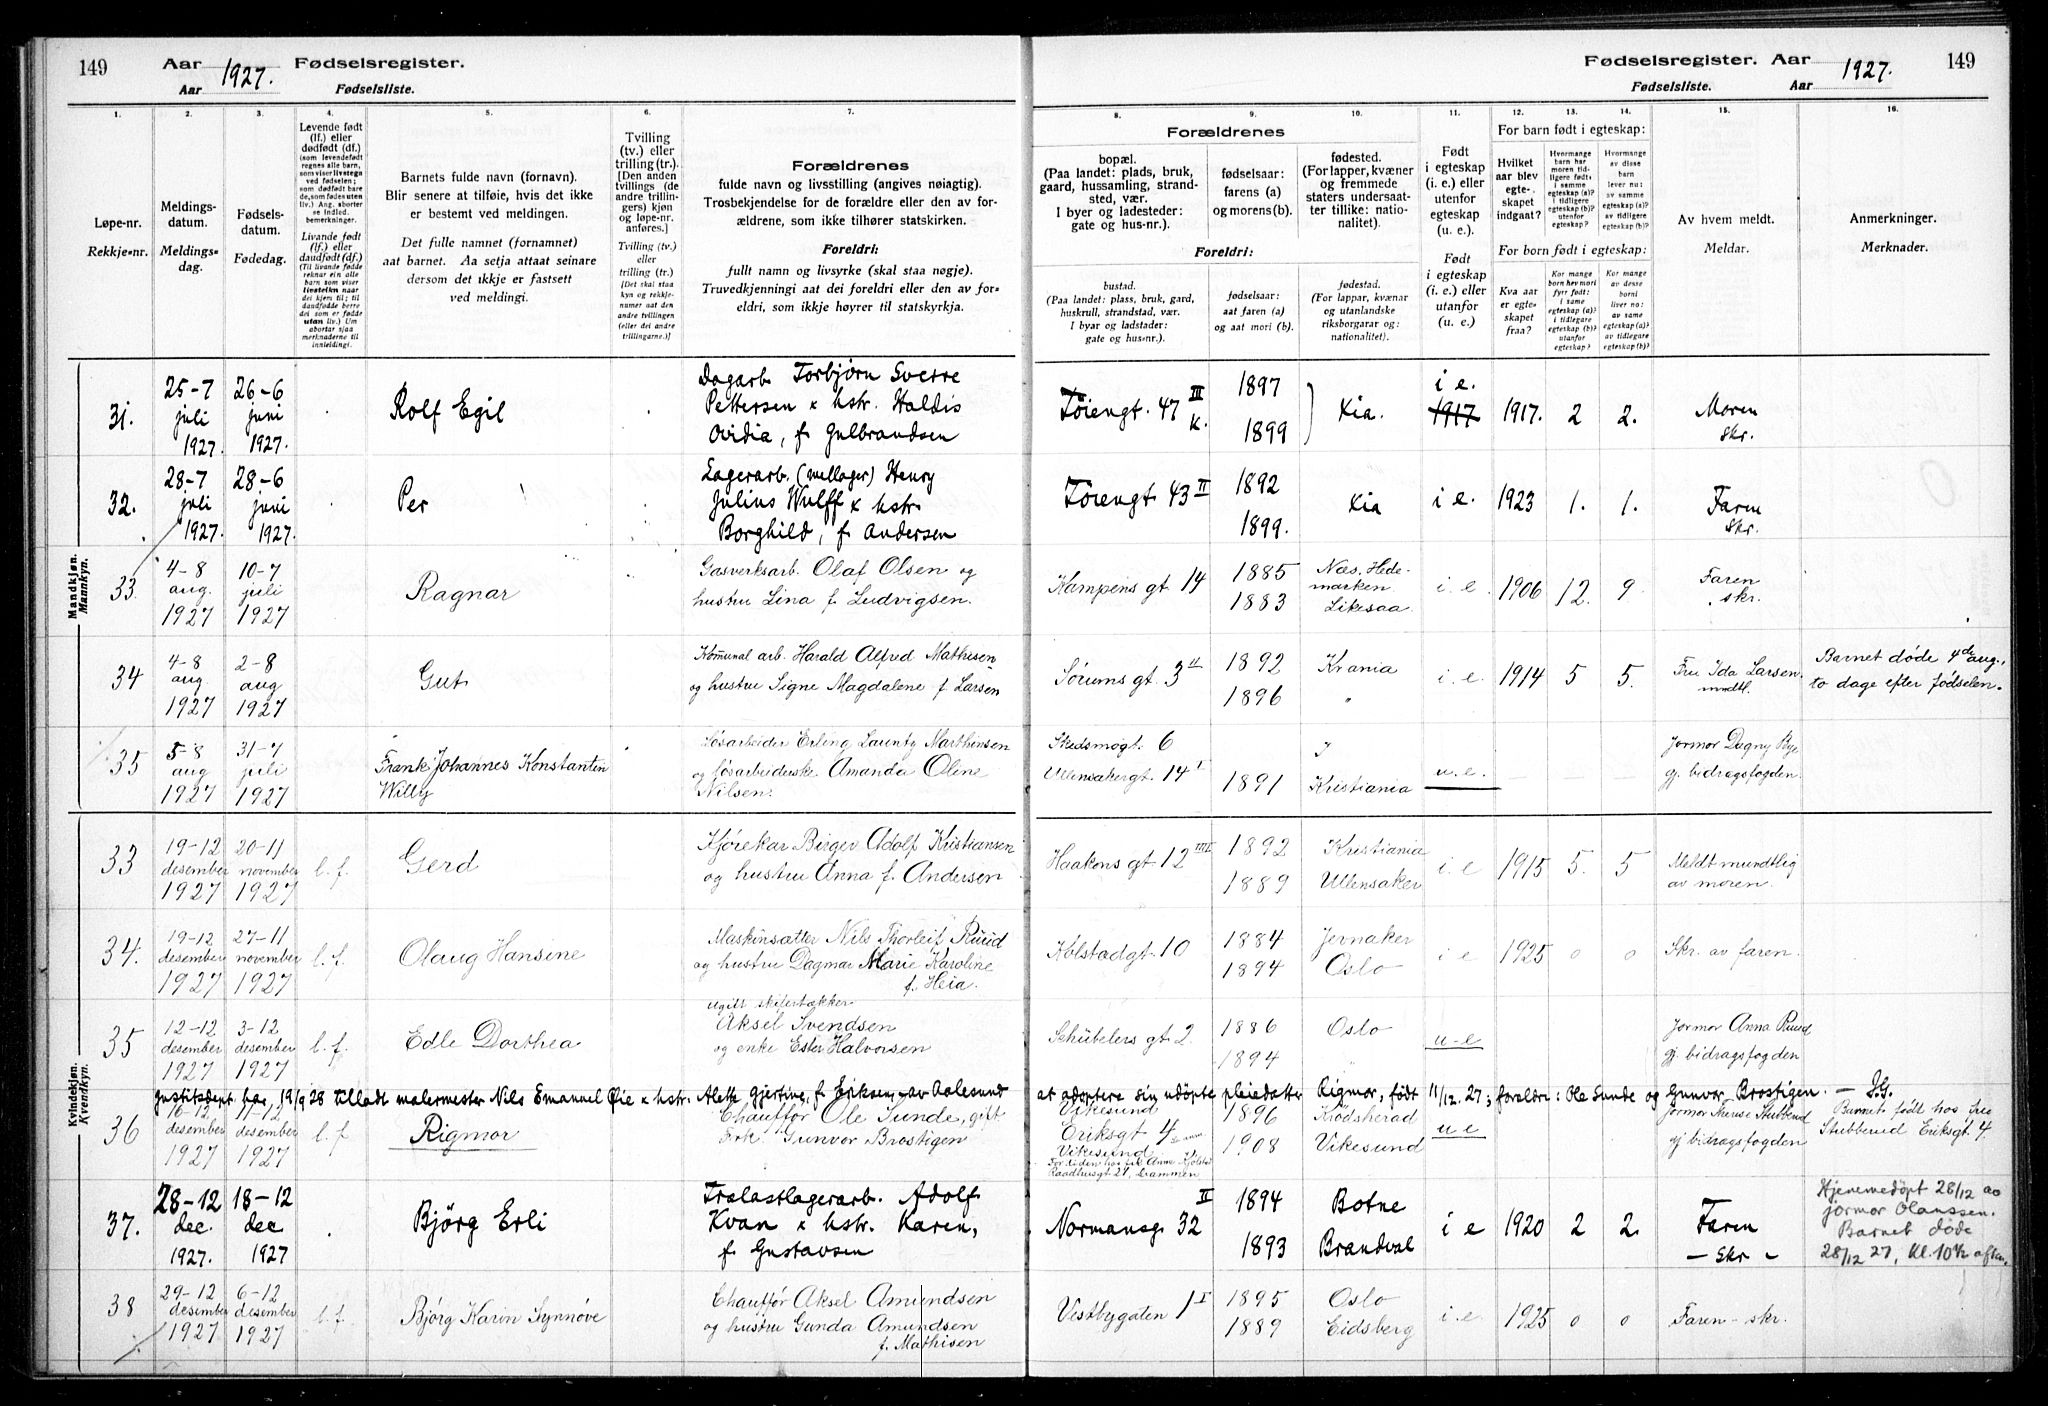 149
Aar 1927. Fødselsregister.
Aar Fødselsliste.
Fødselsregister. Aar 1927. 149
Fødselsliste. Aar
1. 2. 3. 4. 5. 6. 7.
8. 9. 10. 11. 12. 13. 14. 15. 16.
Løpe-nr.
Rekkje-nr.
Meldings-
datum.
Meldings-
dag.
Fødsels-
datum.
Fødedag.
Levende født
(lf.) eller
dødfødt (df.)
Livande født
(lf.) eller
daudfødt (df.)
Barnets fulde navn (fornavn).
Blir senere at tilføie, hvis det ikke
er bestemt ved meldingen.
Det fulle namnet (fornamnet)
aat barnet. Aa setja attaat seinare
dersom det ikkje er fastsett
ved meldingi.
Tvilling
(tv.) eller
trilling (tr.).
[Den anden
tvillings (de
andre trillin-
gers) kjøn
og løpe-nr.
anføres.]
Tvilling (tv.)
eller
trilling (tr.)
Forældrenes
fulde navn og livsstilling (angives nøiagtig).
Trosbekjendelse for de forældre eller den av for-
ældrene, som ikke tilhører statskirken.
Foreldri:
fullt namn og livsyrke (skal staa nøgje).
Truvedkjenningi aat dei foreldri eller den av for-
eldri, som ikkje høyrer til statskyrkja.
Forældrenes
bopæl.
(Paa landet: plads, bruk,
gaard, hussamling, strand-
sted, vær.
I byer og ladesteder:
gate og hus-nr.).
fødselsaar:
farens (a)
og morens (b).
fødested.
(For lapper, kvæner
og fremmede
staters undersaat-
ter tillike: natio-
nalitet).
Foreldri:
bustad.
(Paa landet: plass, bruk, gard,
huskrull, strandstad, vær.
I byar og ladstader:
gate og hus-nr.).
fødselsaar:
aat faren (a)
og aat mori (b).
fødestad.
(For lappar, kvænar
og utanlandske
riksborgarar og:
nationalitet).
Født
i egteskap
(i. e.) eller
utenfor
egteskap
(u. e.).
Født
i egteskap
(i. e.) eller
utanfor
(u. e.).
For barn født i egteskap:
Hvilket
aar blev
egte-
skapet
indgaat?
For born født i egteskap:
Kva aar
er egte-
skapet
fraa?
Av hvem meldt.
Meldar.
Anmerkninger.
Merknader.
Mandkjøn.
Mannkyn.
31. 25-7 juli 1927. 26-6 juni 1927. Rolf Egil
Dagarb. Torbjørn Sverre
Pettersen x hstr. Haldis
Ovidia, f. Gulbrandsen
Tøiengt. 47 III k. 1897 1899 Kia. i e. 1917 1917. 2 2. Moren skr.
32. 28-7 juli 1927. 28-6 juni 1927. Per
Lagerarb. (mellager) Henry
Julius Wulff x hstr.
Borghild, f. Andersen
Tøiengt. 43 II 1892 1899. Kia i e. 1923 1. 1. Faren skr.
33. 4-8 aug. 1927 10-7 juli 1927 Ragnar
Gasverksarb. Olaf Olsen og
hustru Lina f. Ludvigsen.
Kampens gt 14 1885 1883 Næs. Hede-
marken
Likesaa i. e. 1906 12. 9. Faren skr.
34 4-8 aug. 1927 2-8 aug 1927 Gut
Komunal arb. Harald Alfred Mathisen
og hustru Signe Magdalene f. Larsen
Sørums gt. 3 II 1892 1896 Krania " i. e. 1914 5 5. Fru Ida Larsen. mndtl. Barnet døde 4de aug.,
to dage efter fødselen.
35 5-8 aug 1927 31-7 juli 1927 Frank Johannes Konstantin
Willy
Løsarbeider Erling Laurity Marthinsen
og løsarbeiderske Amanda Oline
Nilsen.
Skedsmogt. 6
Ullensakergt. 14 I 1891 Kristiania u. e. Jormor Dagny Bye
gj. bidragsfogden.
Kvindekjøn.
Kvendkyn.
33 19-12 desember 1927 20-11 november 1927 l. f. Gerd
Kjørekar Birger Adolf Kristiansen
og hustru Anna f. Andersen
Haakons gt 12 1892 1889 Kristiania
Ullensaker i. e 1915 5. 5 Meldt mundtlig
av moren.
34. 19-12 desember 1927 27-11 november 1927 l. f. Olaug Hansine
Maskinsætter Nils Thorleif Ruud
og hustru Dagmar Marie Karoline
f. Heia.
Kolstadgt. 10 1884 1894 Jevnaker
Oslo i e 1925 0 0 Skr. av faren.
35 12-12 desember 1927 3-12 desember 1927 l. f. Edle Dorthea
ugift skifertækker
Aksel Svendsen
og enke Ester Halvorsen
Schübelers gt 2. 1886 1894 Oslo " u-e Jormor Anna Ruud
gj. bidragsfogden
Justitsdept. har 19/9 28 tilladt malermester Nils Emanuel Øie x hstr. Alette Gjerting, f. Eriksen, av Aalesund at adoptere sin udøpte pleiedatter Rigmor, født 11/12. 27; foreldre: Ole Sunde og Gunvor Brostigen. — J.G.
36 16-12 desember 1927 11-12 desember 1927 l. f. Rigmor
Chauffør Ole Sunde, gift
Frk. Gunvor Brostigen
Vikesund
Eriksgt 4
Vikesund
Raadhusgt 27, Drammen 1896 1908 Krødsherad
Vikesund u e Jormor Therese Stubberud
gj bidragsfogden Barnet født hos fru
Stubberud Eriksgt 4.
37. 28-12 dec. 1927. 18-12 dec 1927 Bjørg Erli
Trælastlagerarb. Adolf
Kvan x hstr. Karen,
f. Gustavsen
Normansg. 32 II 1894 1893 Botne
Brandval i e 1920 2 2. Faren
— skr - Hjemmedøpt 28/12 av
jormor Olaussen.
Barnet døde
28/12 27, kl. 10 1/2 aften.
38 29-12 desember 1927 6-12 desember 1927 l. f. Bjørg Karin Synnøve
Chauffør Aksel Amundsen
og hustru Gunda Amundsen
f. Mathisen
Vestbygaten 1 I 1895 1889 Oslo
Eidsberg i. e. 1925 0 0 Faren - skr.